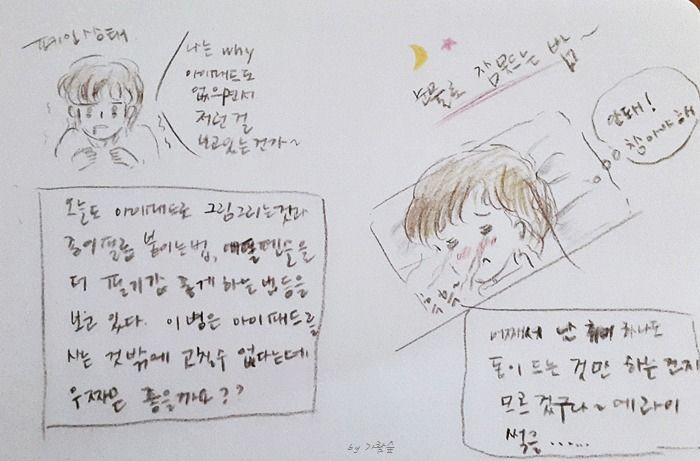 폐인상태
나는 why
아이패드도
없으면서
저런 걸
보고있는건가~
오늘도 아이패드로 그림그리는것과
종이필름 붙이는법, 애플펜슬을
더 필기감 좋게 하는 법등을
보고 있다. 이 병은 아이패드를
사는 것밖에 고칠수 없다는데
우짜믄 좋을까요??
눈물로 잠못드는 밤~
안돼!
참아야해
흑흑~
어째서 난 취미 하나도
돈이 드는 것만 하는건지
모르겠구나~ 에라이
썩을......
by 가람숲